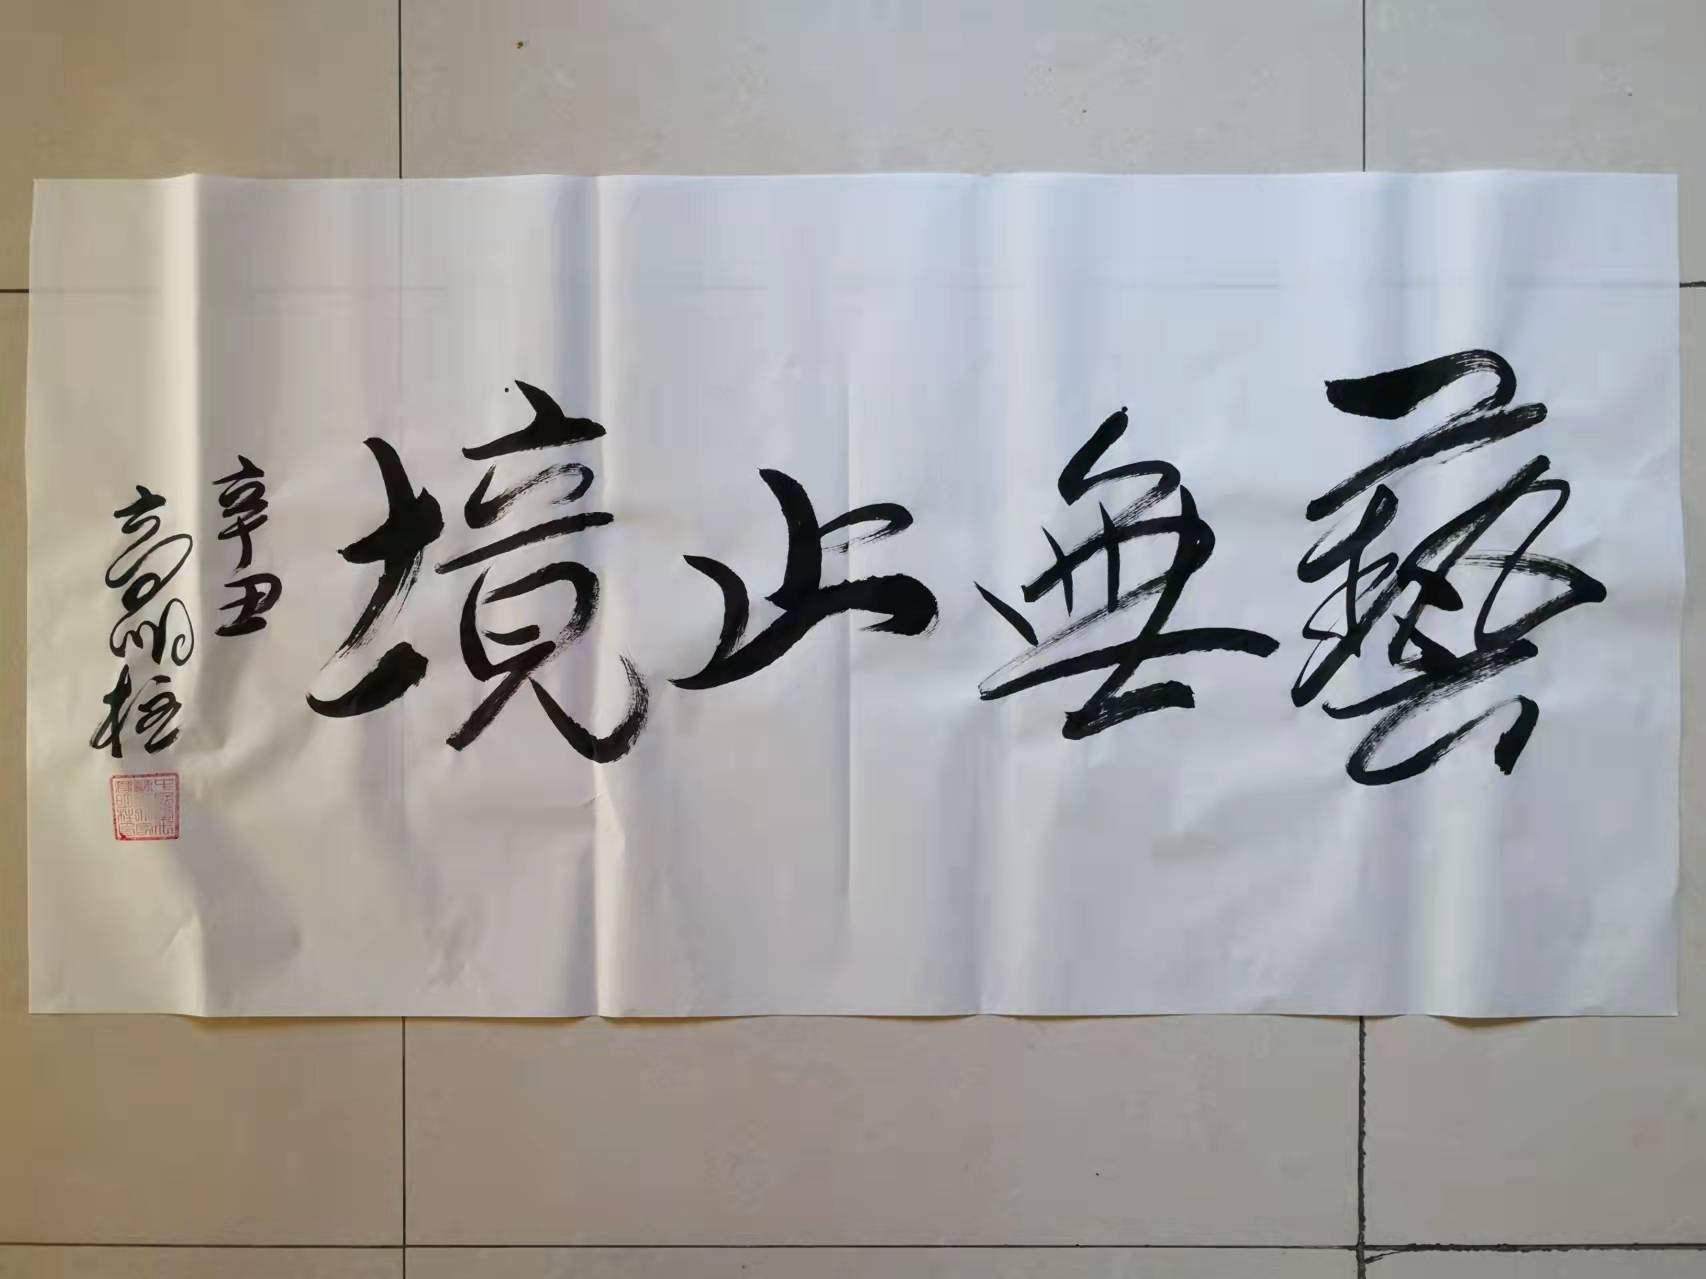 藝無止境
辛丑
高明柱